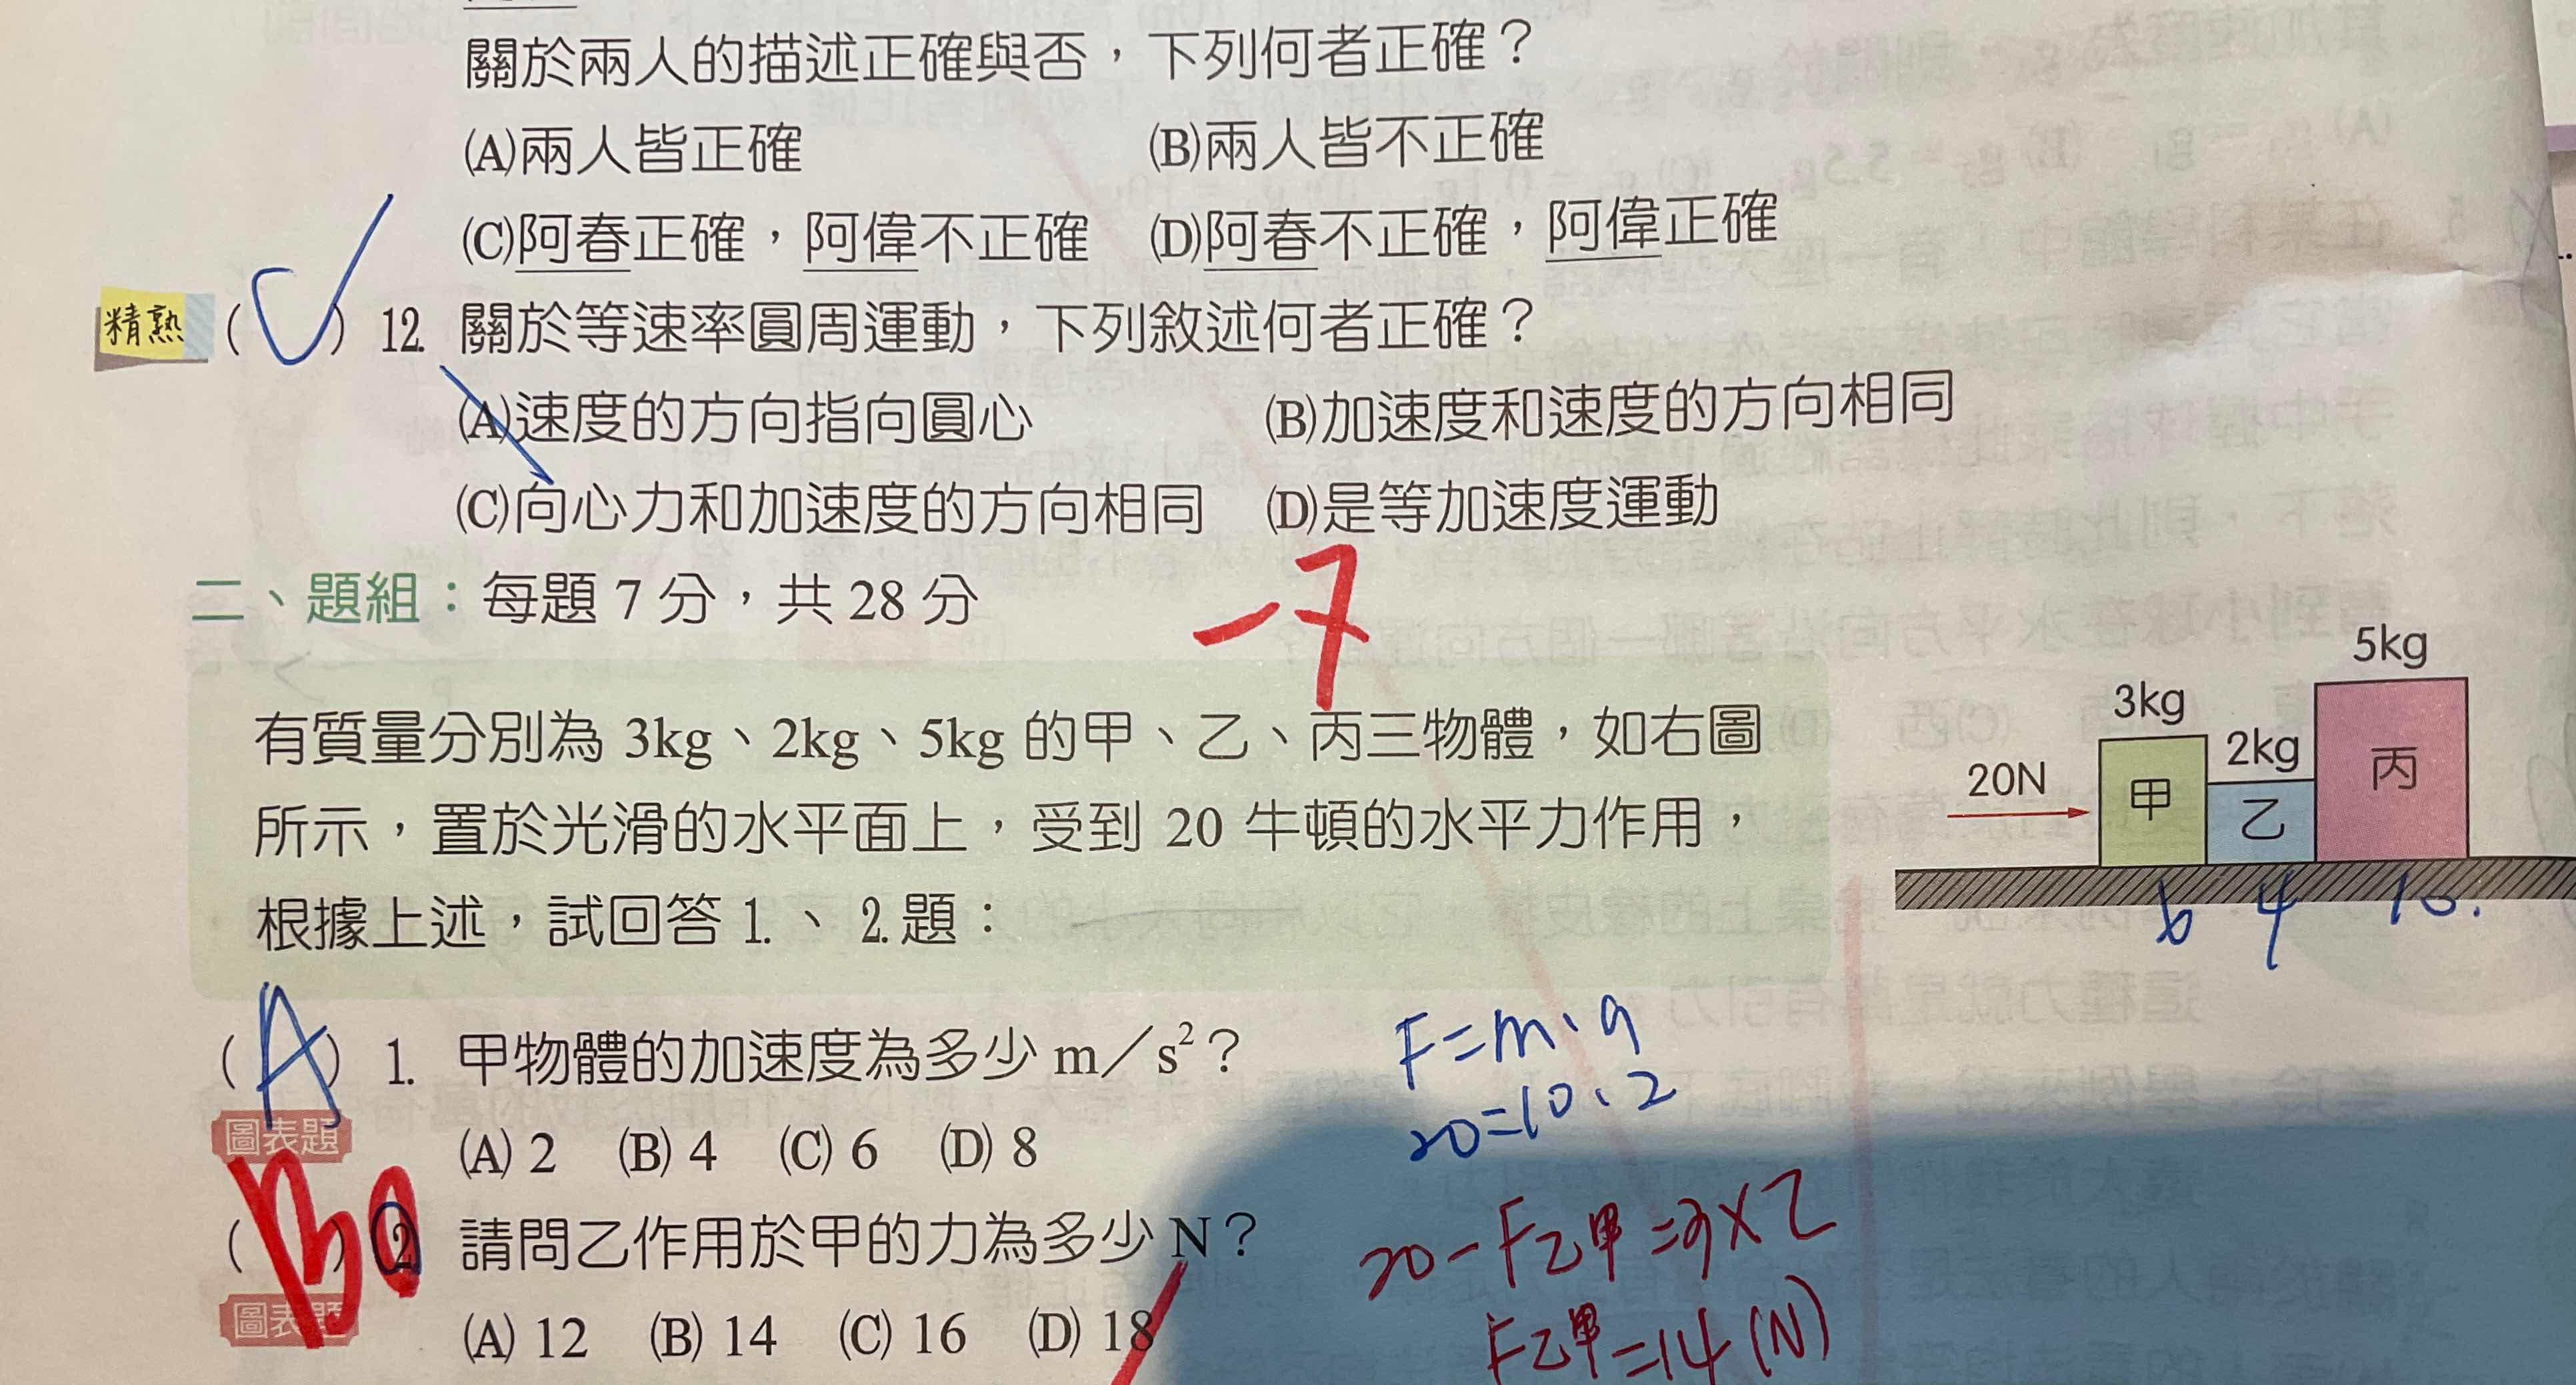 關於兩人的描述正確與否，下列何者正確？
(A)兩人皆正確 (B)兩人皆不正確
(C)阿春正確，阿偉不正確 (D)阿春不正確，阿偉正確
精熟 ( ) 12. 關於等速率圓周運動，下列敘述何者正確？
(A)速度的方向指向圓心 (B)加速度和速度的方向相同
(C)向心力和加速度的方向相同 (D)是等加速度運動
二、題組：每題 7 分，共 28 分
-7
有質量分別為 3kg、2kg、5kg 的甲、乙、丙三物體，如右圖
所示，置於光滑的水平面上，受到 20 牛頓的水平力作用，
根據上述，試回答 1.、2.題：
5kg
3kg
2kg
20N
甲 乙 丙
6 4 10.
(A) 1. 甲物體的加速度為多少 m／s²？
圖表題
(A) 2 (B) 4 (C) 6 (D) 8
F=m·a
20=10·2
(B) 2. 請問乙作用於甲的力為多少 N？
圖表題
(A) 12 (B) 14 (C) 16 (D) 18
20-F乙甲=3×2
F乙甲=14(N)